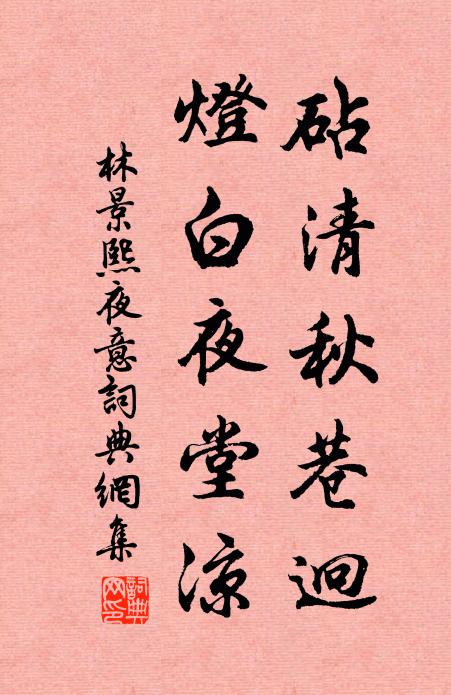 砧清秋巷迥
燈白夜堂涼
林景熙夜意詞典網集
詞典網印